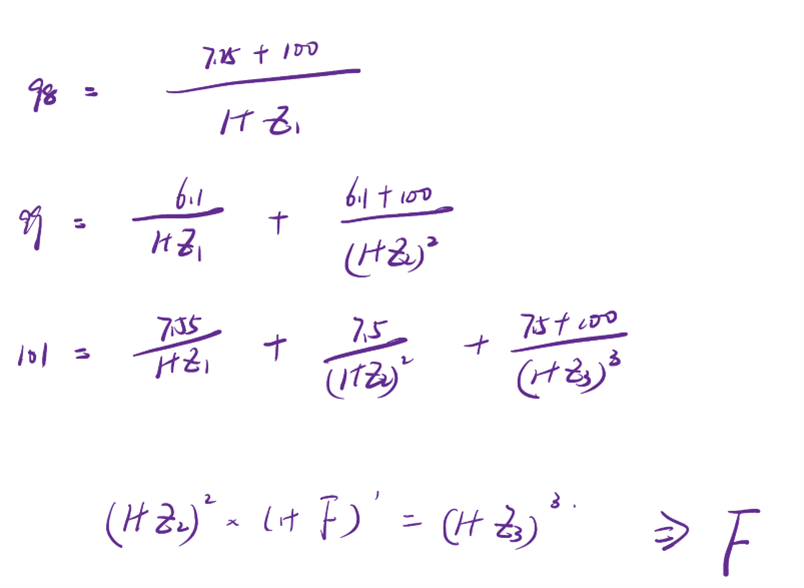 98 = (7.25 + 100) / (1+Z₁)
99 = 6.1 / (1+Z₁) + (6.1 + 100) / (1+Z₂)²
101 = 7.55 / (1+Z₁) + 7.5 / (1+Z₂)² + (7.5 + 100) / (1+Z₃)³
(1+Z₂)² × (1+F)¹ = (1+Z₃)³. ⇒ F